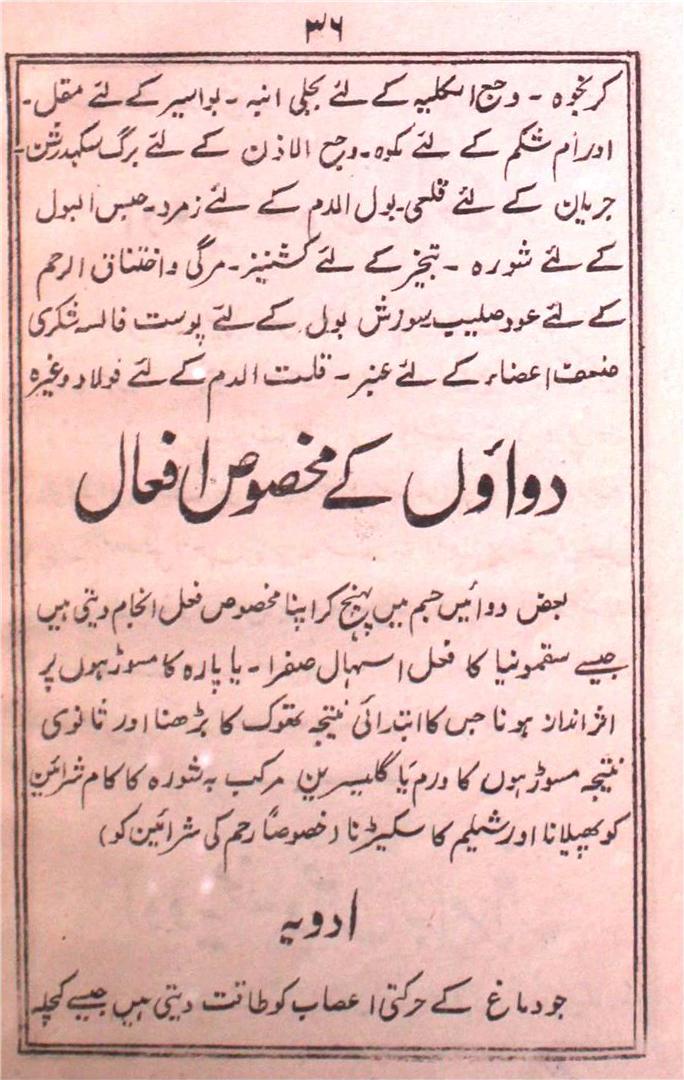 ۳۶
کرنجوہ - وجع الکلیہ کے لئے بجلی انبہ - بواسیر کے لئے مقل-
اورام شکم کے لئے مکوہ - وجع الاذن کے لئے برگ سکھدرشن-
جریان کے لئے قلعی - بول الدم کے لئے زمرد - حبس البول
کے لئے شورہ - تبخیر کے لئے کشنیز - مرگی و اختناق الرحم
کے لئے عود صلیب سوزش بول کے لئے پوست فالسہ شکری
ضعف اعضاء کے لئے عنبر - قلت الدم کے لئے فولاد وغیرہ
دواؤں کے مخصوص افعال
بعض دوائیں جسم میں پہنچ کر اپنا مخصوص فعل انجام دیتی ہیں
جیسے سقمونیا کا فعل اسہال صفرا - یا پارہ کا مسوڑہوں پر
اثر انداز ہونا جس کا ابتدائی نتیجہ تھوک کا بڑھنا اور ثانوی
نتیجہ مسوڑہوں کا ورم یا گلیسرین مرکب بہ شورہ کا کام شرائین
کو پھیلانا اور شیلم کا سکیڑنا (خصوصاً رحم کی شرائین کو)
ادویہ
جو دماغ کے حرکتی اعصاب کو طاقت دیتی ہیں جیسے کچلہ